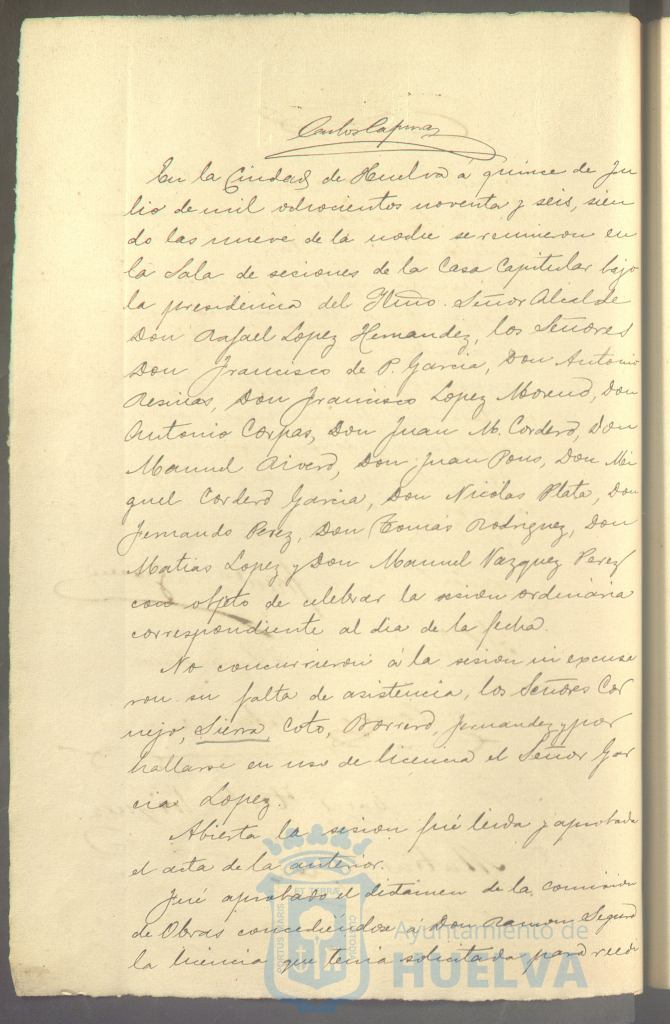 En la Ciudad de Huelva á quince de Ju
lio de mil ochocientos noventa y seis, sien
do las nueve de la noche se reunieron en
la Sala de seciones de la Casa Capitular bajo
la presidencia del Iltmo. Señor Alcalde
Don Rafael Lopez Hernandez, los Señores
Don Francisco de P. Garcia, Don Antonio
Resinas, Don Francisco Lopez Moreno, Don
Antonio Corpas, Don Juan M. Cordero, Don
Manuel Rivero, Don Juan Pons, Don Mi
guel Cordero Garcia, Don Nicolas Plata, Don
Fernando Perez, Don Tomás Rodriguez, Don
Matias Lopez y Don Manuel Vazquez Perez
con objeto de celebrar la sesion ordinaria
correspondiente al dia de la fecha.
No concurrieron á la sesion ni excusa
ron su falta de asistencia, los Señores Cor
nejo, Sierra, Coto, Borrero, Fernandez y por
hallarse en uso de licencia el Señor Gar
cia Lopez
Abierta la sesion fué leida y aprobada
el acta de la anterior.
Fué aprobado el dictamen de la comision
de Obras concediendose á Don Ramon Seguro
la licencia que tenia solicitada para reedi
PORTUS MARIS ET TERRAE CUSTODIA
Ayuntamiento de
HUELVA